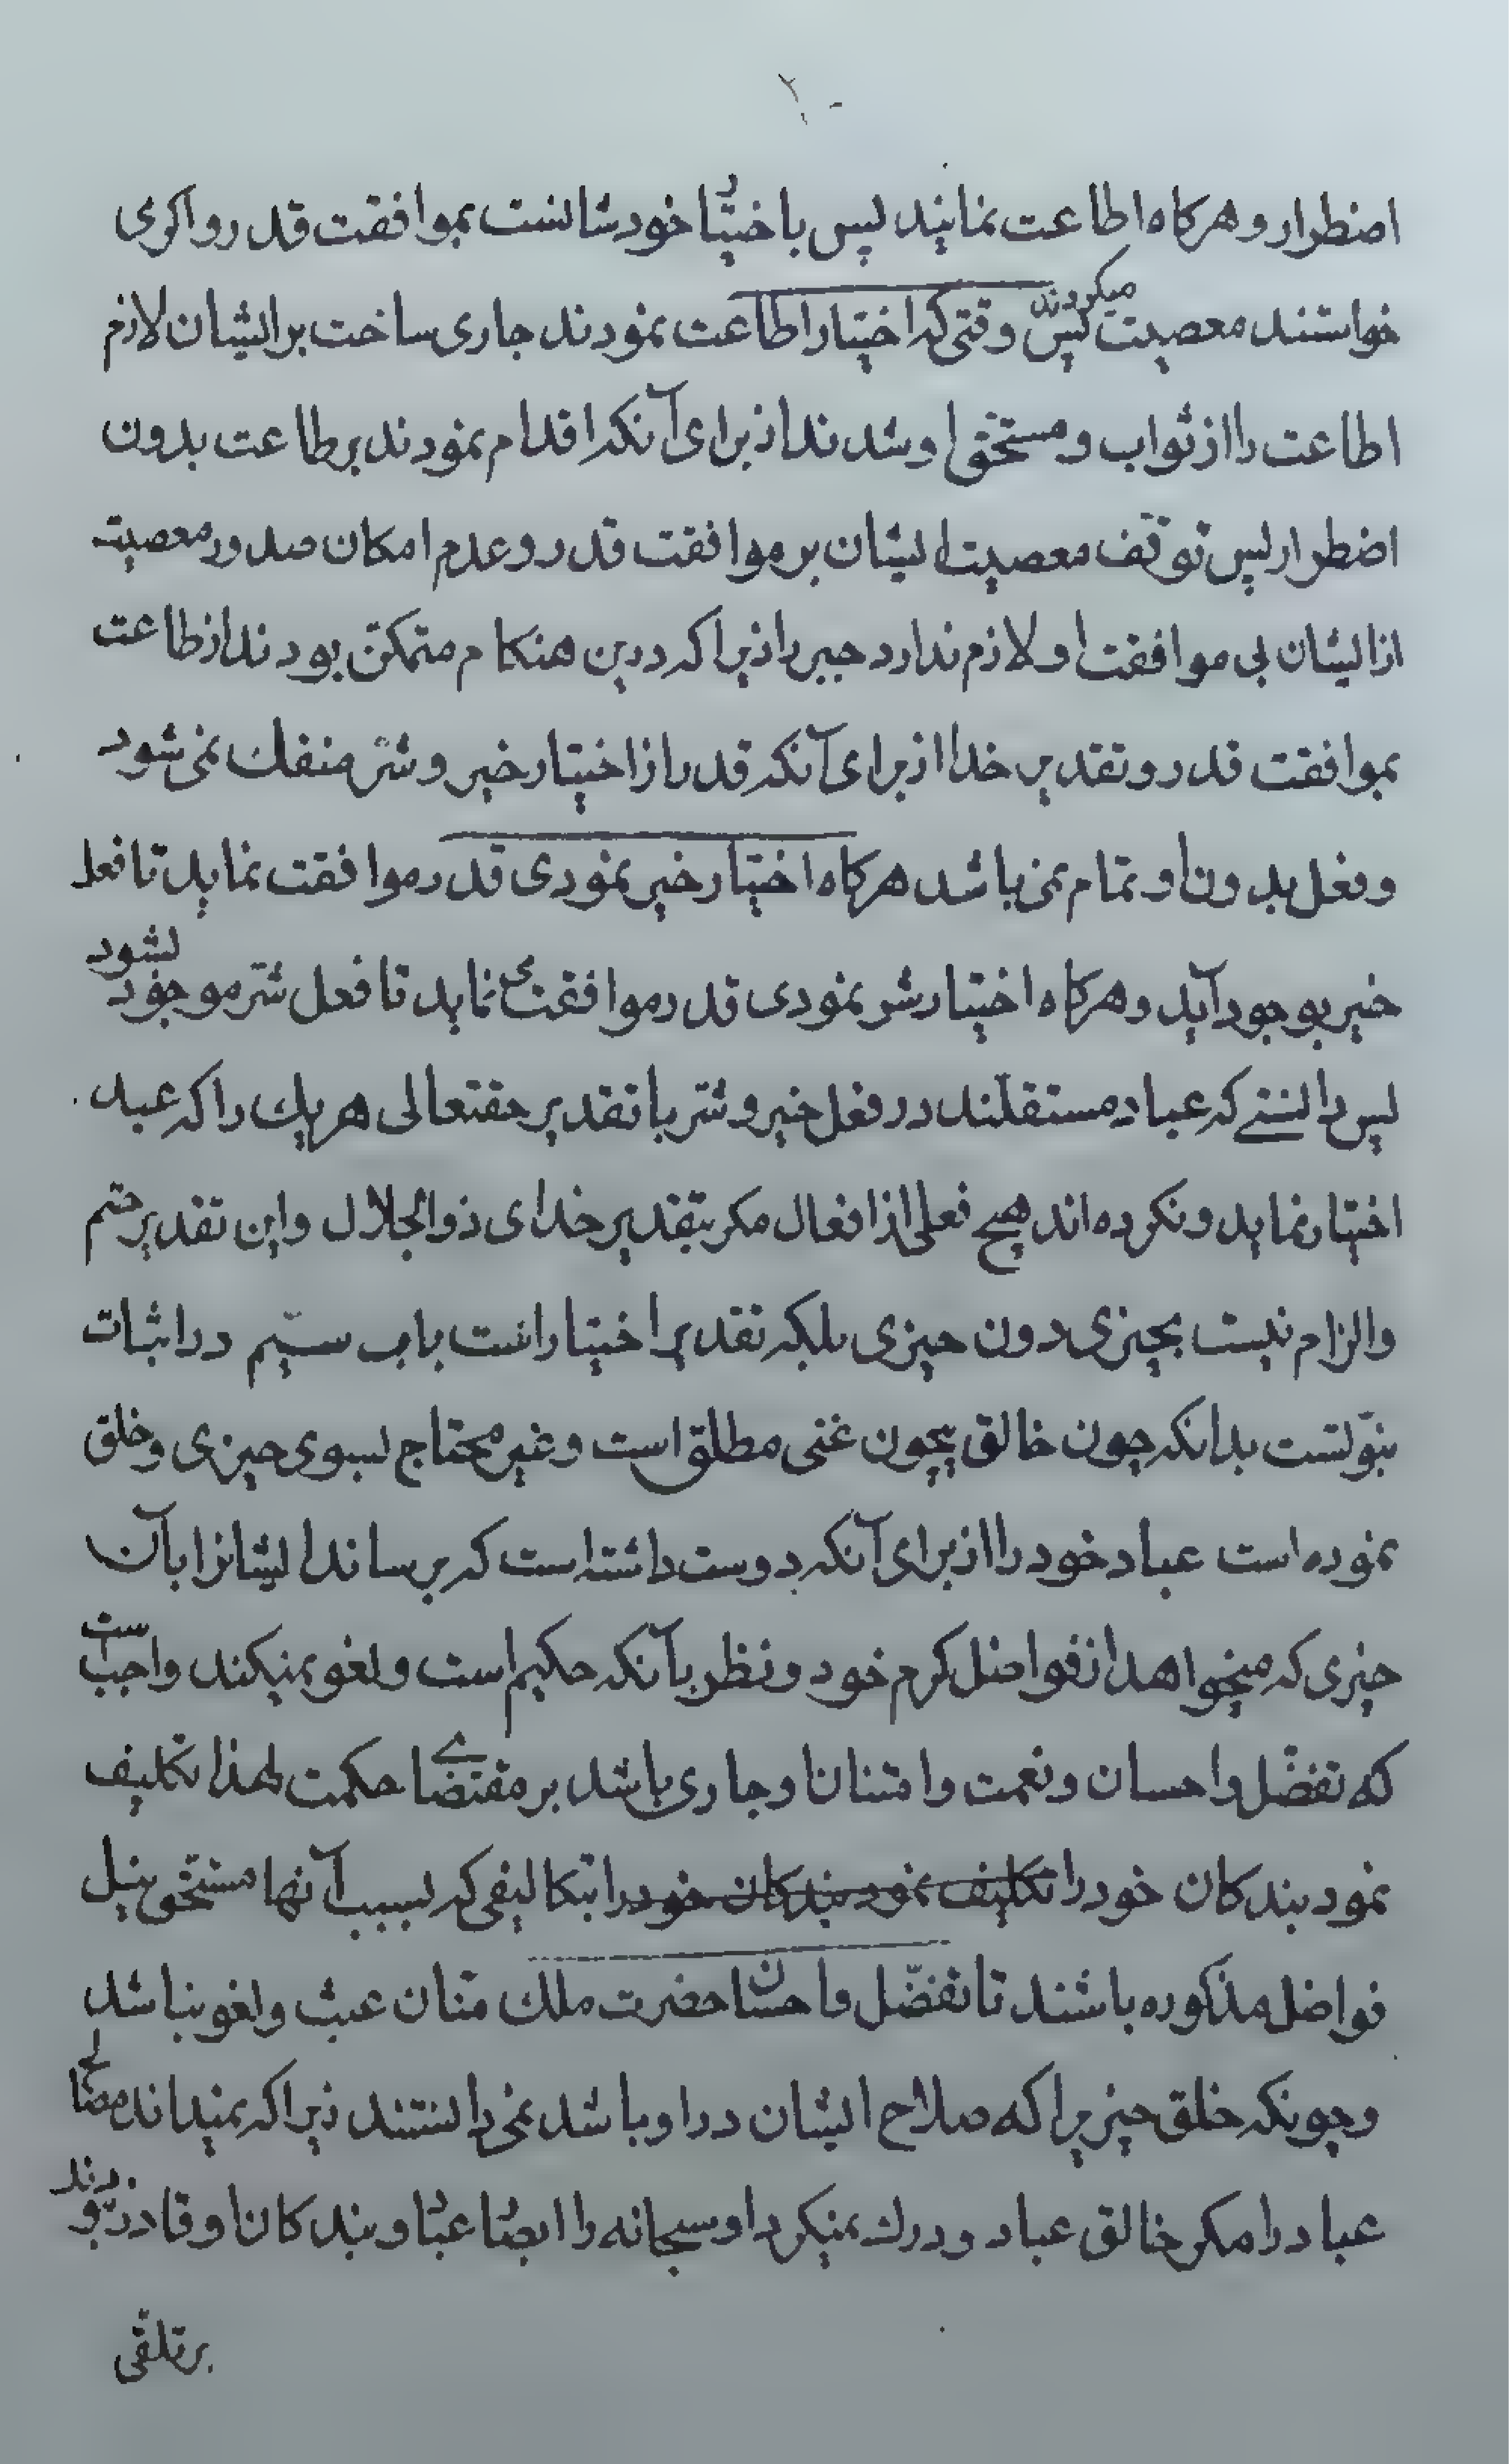 ۲۰
اضطرار و هرکاه اطاعت نمایند پس باختیار خودشانست بموافقت قدر و اکر می
خواستند معصیت میکردند پس وقتی که اختیار اطاعت نمودند جاری ساخت بر ایشان لازم
اطاعت را از ثواب و مستحق او شدند از برای آنکه اقدام نمودند بر طاعت بدون
اضطرار پس توقف معصیت ایشان بر موافقت قدر و عدم امکان صدور معصیت
از ایشان بی موافقت او لازم ندارد جبر را زیرا که درین هنکام متمکّن بودند از طاعت
بموافقت قدر و تقدیر خدا از برای آنکه قدر از اختیار خیر و شرّ منفك نمی شود
و فعل بدون او تمام نمی باشد هرکاه اختیار خیر نمودی قدر موافقت نماید تا فعل
خیر بوجود آید و هرکاه اختیار شر نمودی قدر موافقت نماید تا فعل شرّ موجود بشود
پس دانستے که عباد مستقلّند در فعل خیر و شرّ با تقدیر حقتعالی هر یك را که عبد
اختیار نماید و نکرده اند هیچ فعلی از افعال مکر بتقدیر خدای ذوالجلال و این تقدیر حتم
و الزام نیست بچیزی دون چیزی بلکه تقدیر اختیار است باب سیّم در اثبات
نبوّتست بدانکه چون خالق بیچون غنی مطلق است و غیر محتاج بسوی چیزی و خلق
نموده است عباد خود را از برای آنکه دوست داشته است که برساند ایشانرا بآن
چیزی که میخواهد از فواضل کرم خود و نظر بآنکه حکیم است و لغو نمیکند واجب است
که تفضّل و احسان و نعمت و امتنان او جاری باشد بر مقتضاے حکمت لهذا تکلیف
نمود بندکان خود را تکلیف نمود بندکان خود را بتکالیفی که بسبب آنها مستحق نیل
فواضل مذکوره باشند تا تفضّل و احسان حضرت ملك منّان عبث و لغو نباشد
و چونکه خلق چیزیرا که صلاح ایشان در او باشد نمی دانستند زیرا که نمیداند مصالح
عباد را مکر خالق عباد و درك نمیکرد او سبحانه را ابصار عباد و بندکان او قادر نبودند
بر تلقّی